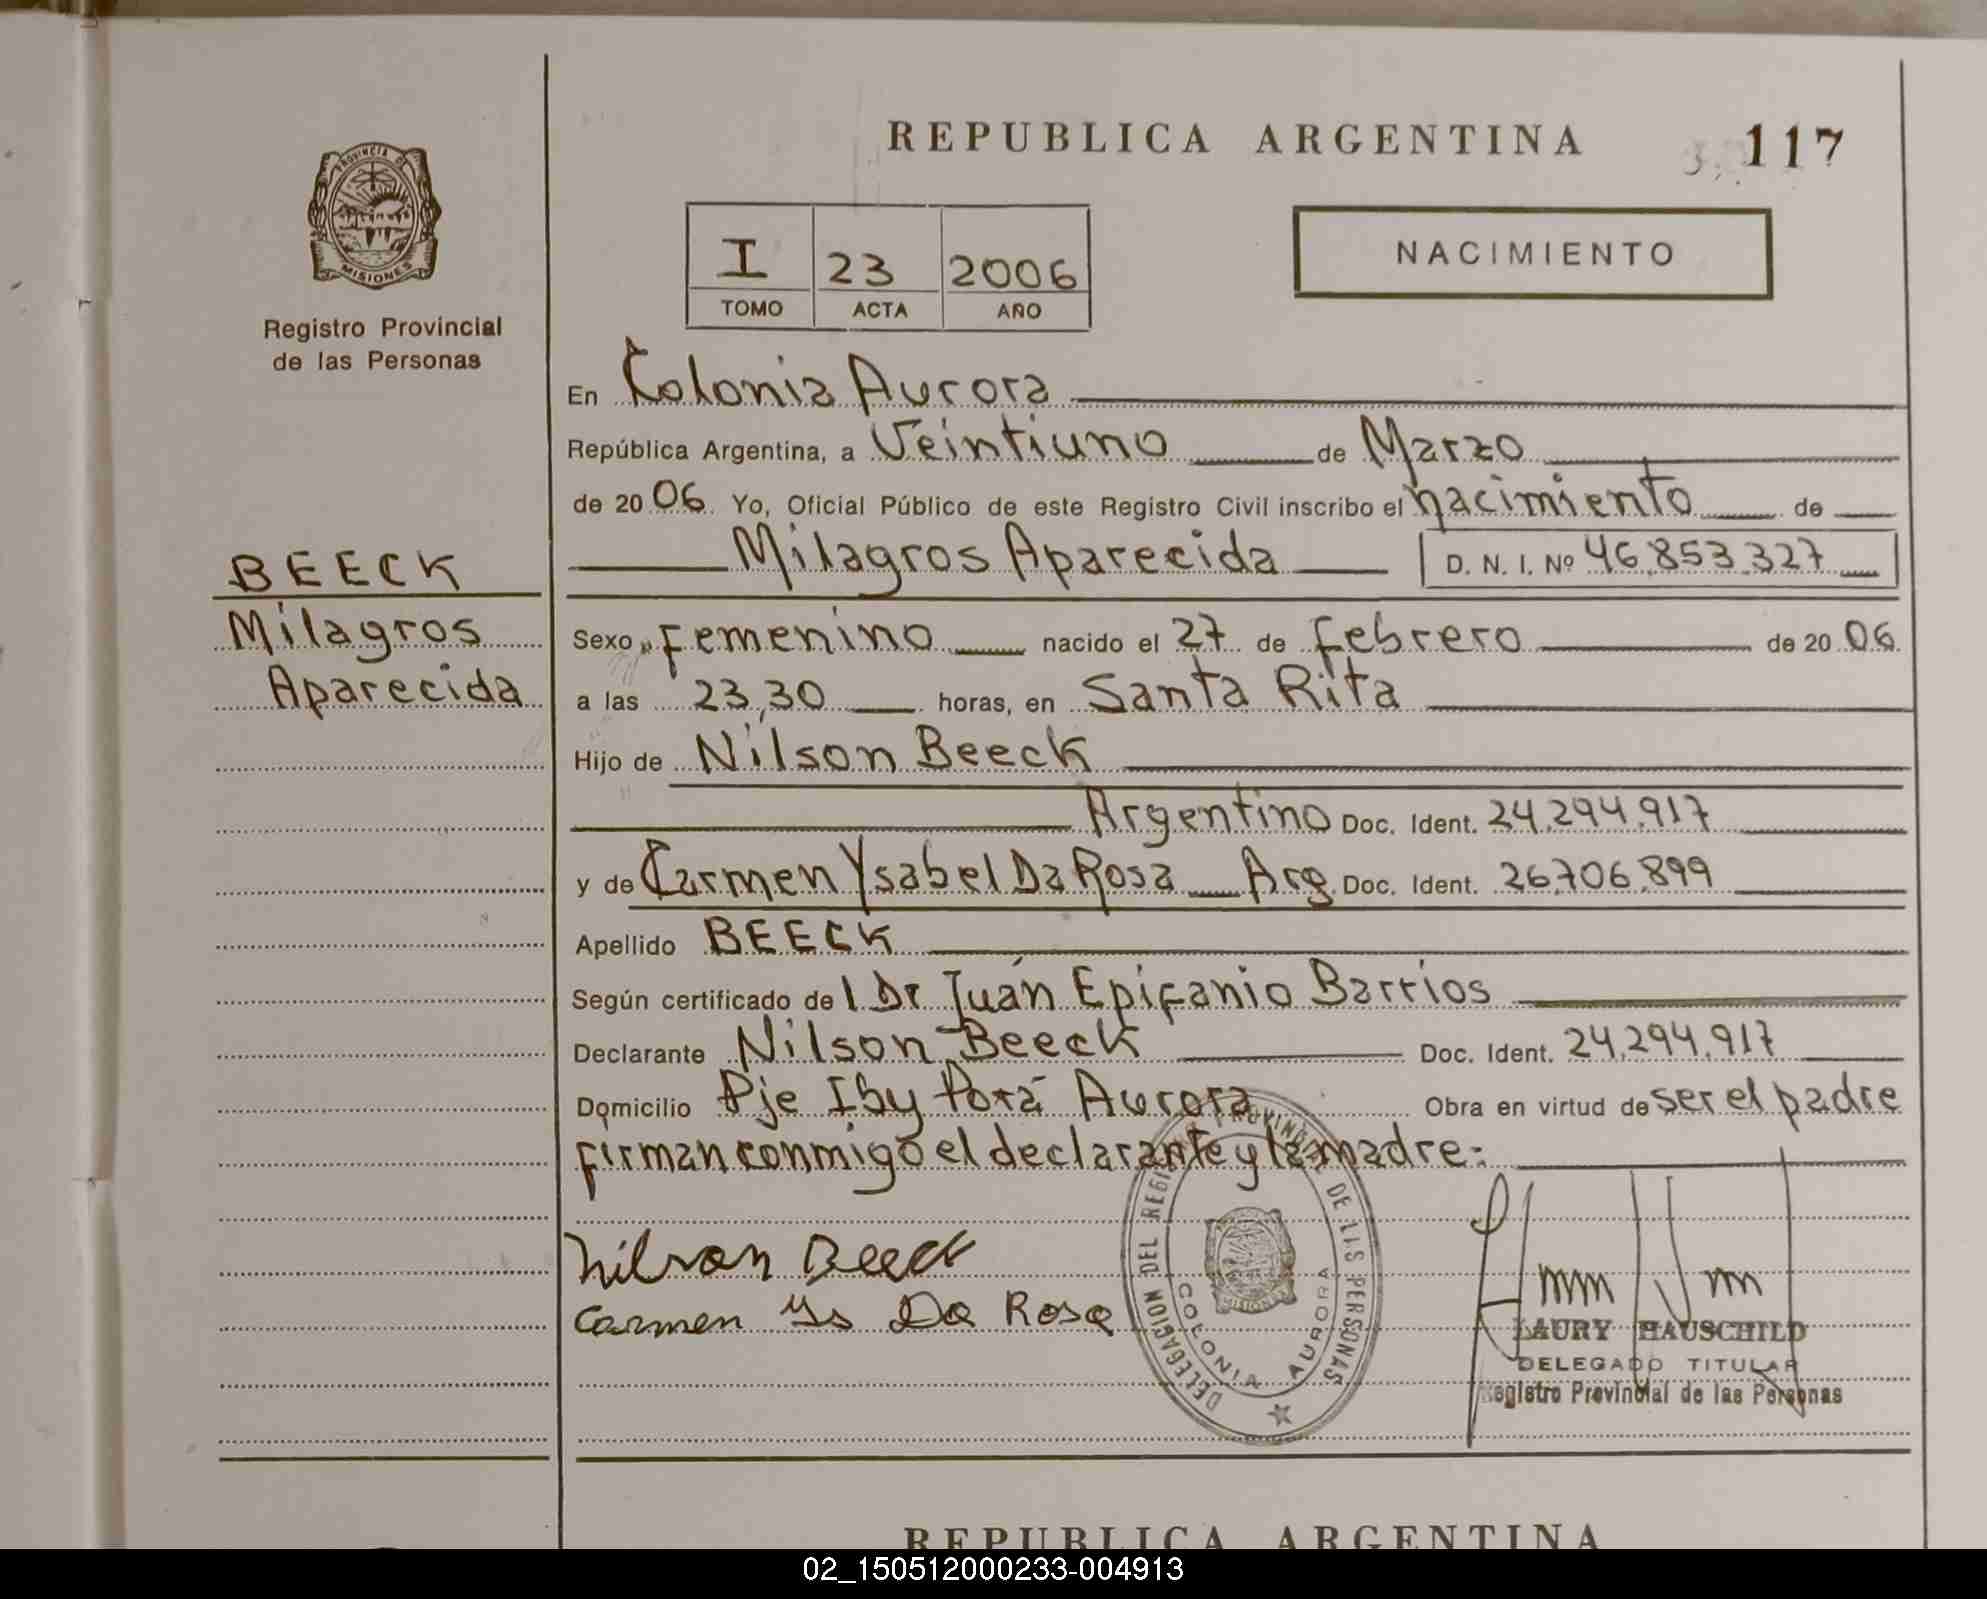 REPUBLICA ARGENTINA 117
PROVINCIA DE
MISIONES
Registro Provincial
de las Personas
I 23 2006
TOMO ACTA AÑO
NACIMIENTO
En Colonia Aurora
República Argentina, a Veintiuno de Marzo
de 2006 Yo, Oficial Público de este Registro Civil inscribo el nacimiento de
BEECK
Milagros
Aparecida
Milagros Aparecida D. N. I. Nº 46.853.327
Sexo Femenino nacido el 27 de Febrero de 2006
a las 23,30 horas, en Santa Rita
Hijo de Nilson Beeck
Argentino Doc. Ident. 24.294.917
y de Carmen Ysabel Da Rosa Arg. Doc. Ident. 26.706.899
Apellido BEECK
Según certificado de l Dr Juán Epifanio Barrios
Declarante Nilson Beeck Doc. Ident. 24.294.917
Domicilio Pje Iby Porá Aurora Obra en virtud de ser el padre
firman conmigo el declarante y la madre:
Nilson Beeck
Carmen Ys Da Rosa
DELEGACION DEL REGISTRO PROVINCIAL DE LAS PERSONAS
COLONIA AURORA
MISIONES
LAURY HAUSCHILD
DELEGADO TITULAR
Registro Provincial de las Personas
REPUBLICA ARGENTINA
02_150512000233-004913